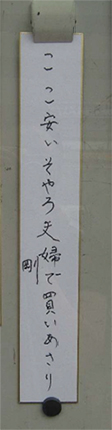 ここ安いそやろ夫婦で買いあさり
剛